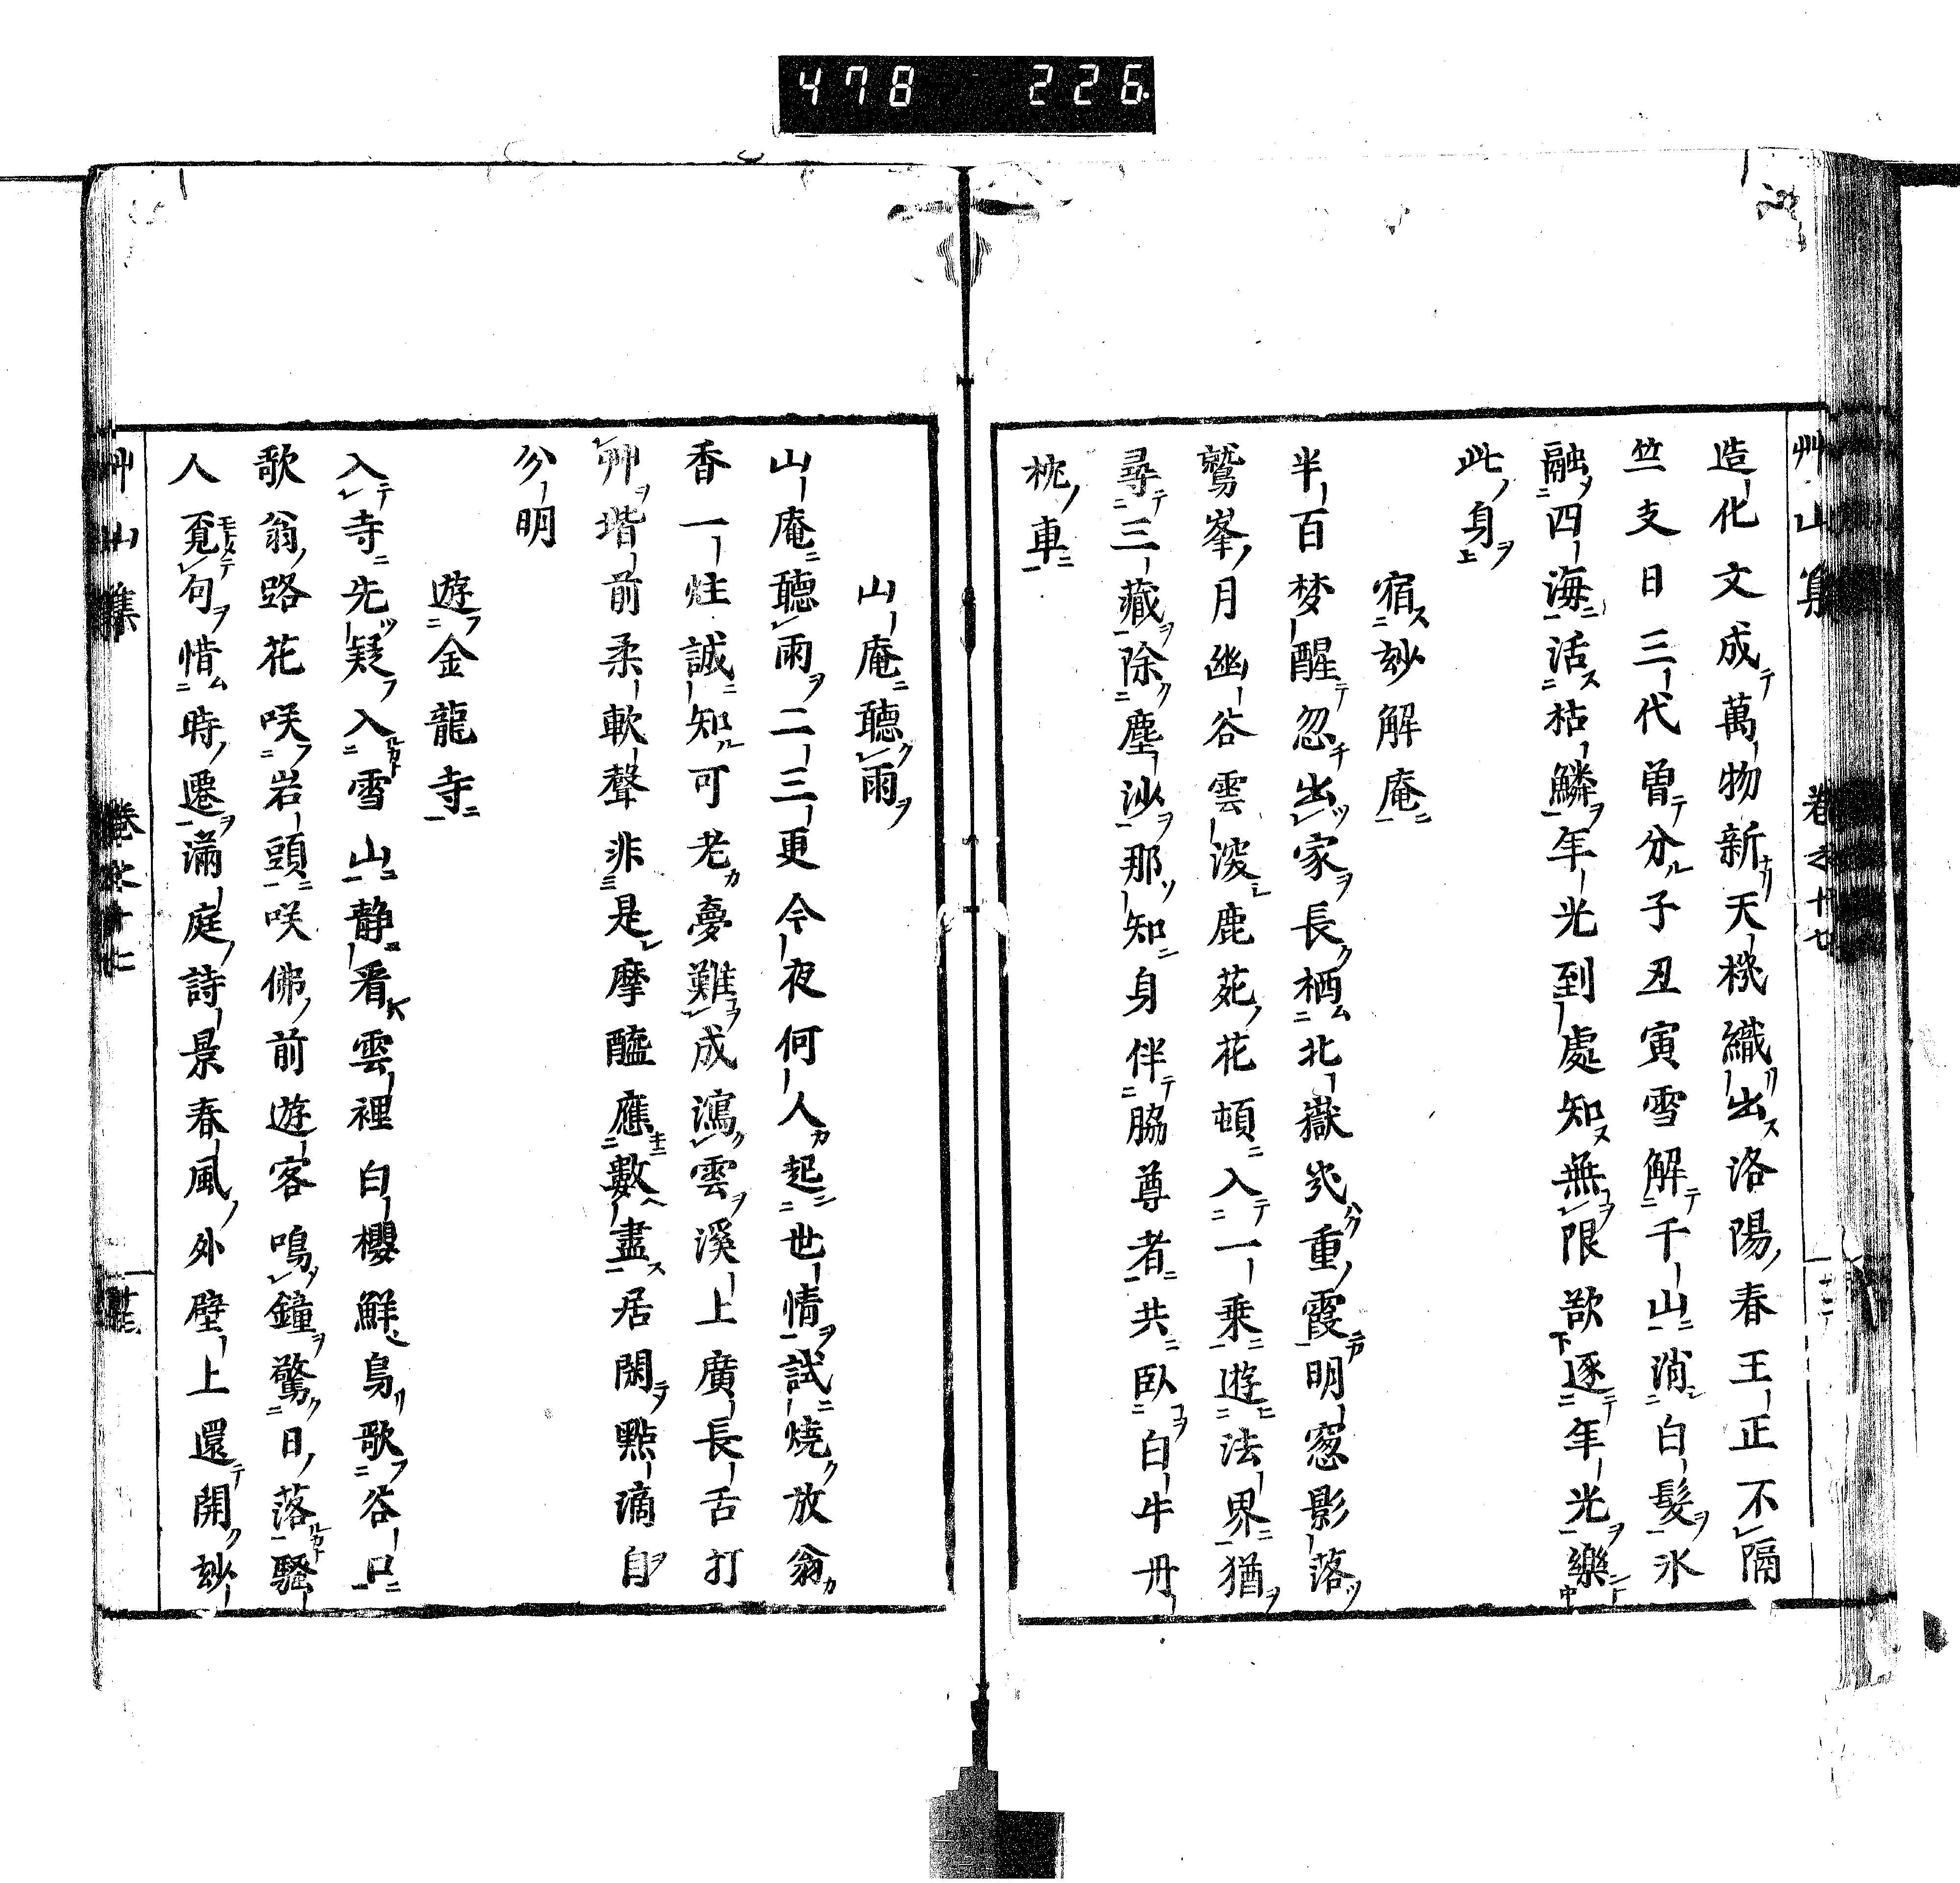 478 226
艸山集 卷之十七
造化文成萬物新天機織出洛陽春王正不隔
竺支日三代曾分子丑寅雪解千山消白髮氷
融四海活枯鱗年光到處知無限欲逐年光樂
此身
宿玅解庵
半百梦醒忽出家長栖北嶽重霞明窓影落
鷲峯月幽谷雲深鹿苑花頓入一乗遊法界猶
尋三藏除塵沙那知身伴脇尊者共臥白牛丹
枕車
山庵聽雨
山庵聽雨二三更今夜何人起世情試燒放翁
香一炷誠知可老夢難成瀉雲溪上廣長舌打
艸堦前柔軟聲非是摩醯應數盡居閑點滴自
分明
遊金龍寺
入寺先疑入雪山静看雲裡白櫻鮮鳥歌谷口
歌翁路花咲岩頭咲佛前遊客鳴鐘驚日落騷
人覓句惜時遷滿庭詩景春風外壁上還開玅
艸山集 卷之十七